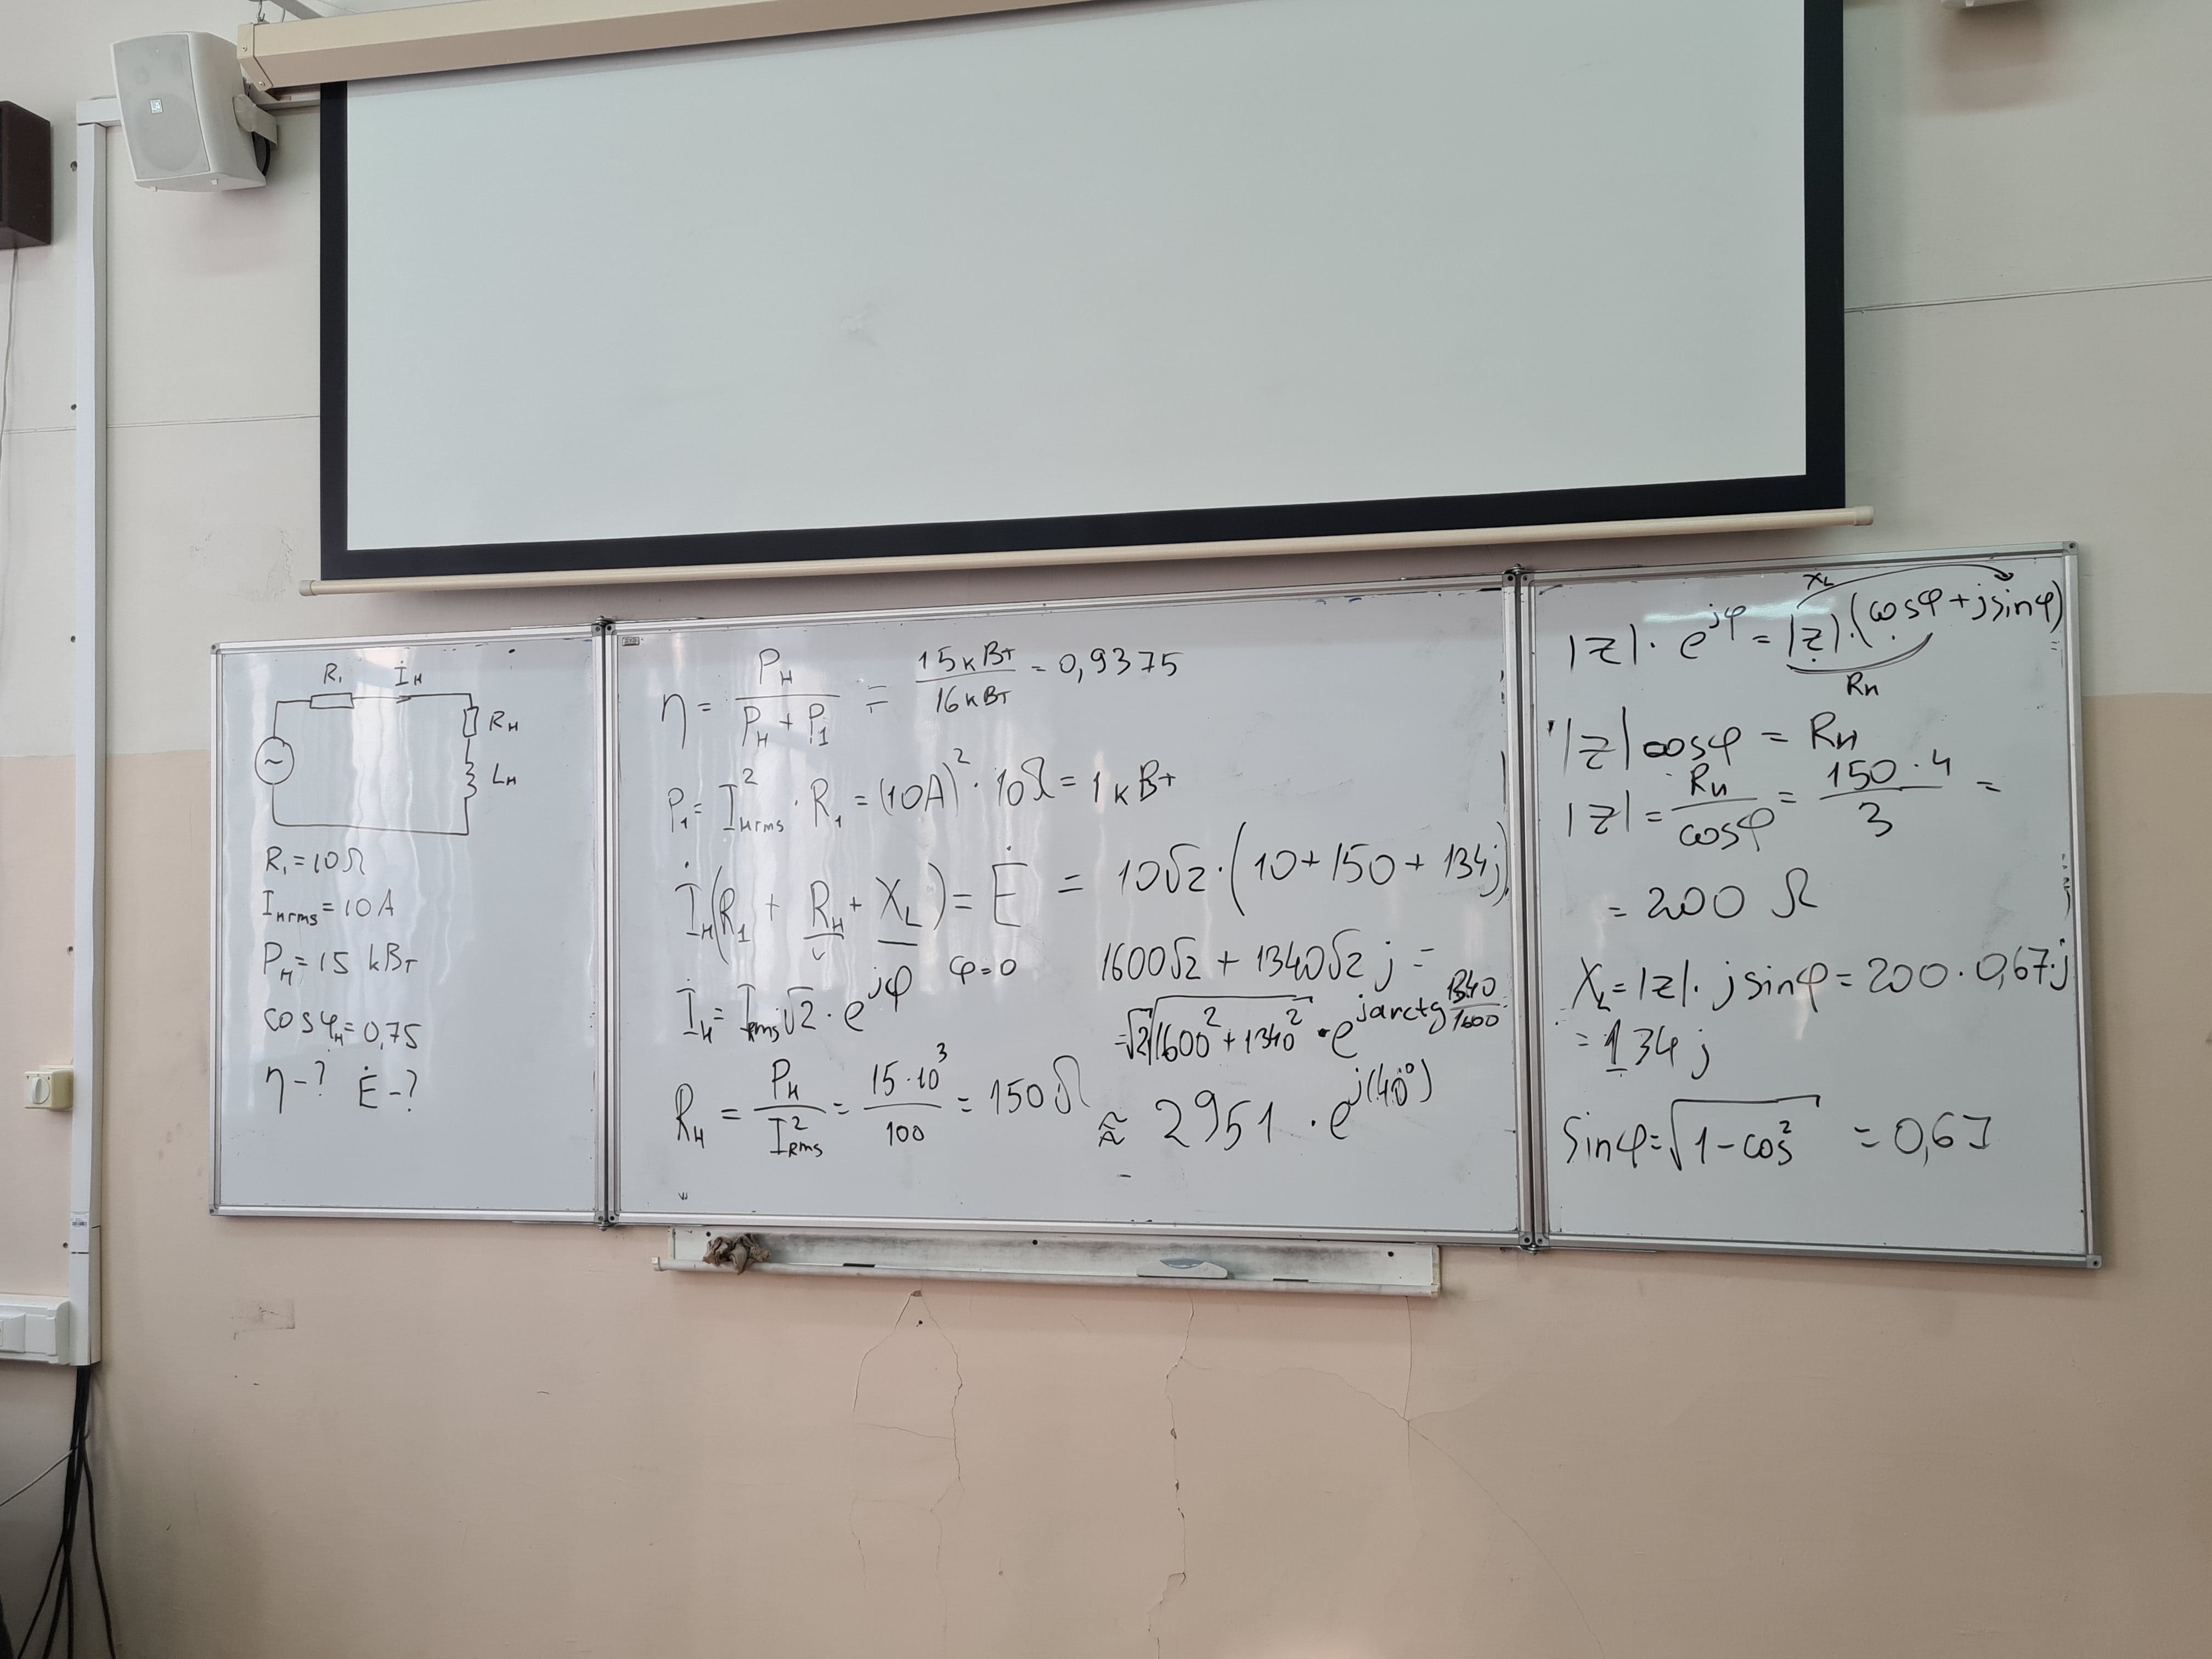 R₁ İн
Rн
~
Lн
R₁ = 10 Ω
Iнrms = 10 A
Pн = 15 kВт
cos φн = 0,75
η - ? Ė - ?
η = Pн / (Pн + P₁) = 15 кВт / 16 кВт = 0,9375
P₁ = I²нrms · R₁ = (10A)² · 10Ω = 1 кВт
İн(R₁ + Rн + X_L) = Ė = 10√2 · (10 + 150 + 134j)
1600√2 + 1340√2 j =
İн = Irms√2 · e^{jφ} φ=0
= √2 √(1600² + 1340²) · e^{jarctg 1340/1600} =
Rн = Pн / I²Rms = 15·10³ / 100 = 150 Ω
≈ 2951 · e^{j(40°)}
X_L
|z| · e^{jφ} = |z| · (cosφ + jsinφ) =
Rн
|z| cosφ = Rн
|z| = Rн / cosφ = 150·4 / 3 =
= 200 Ω
X_L = |z| · j sinφ = 200 · 0,67·j
= 134 j
Sinφ = √(1 - cos²) = 0,67